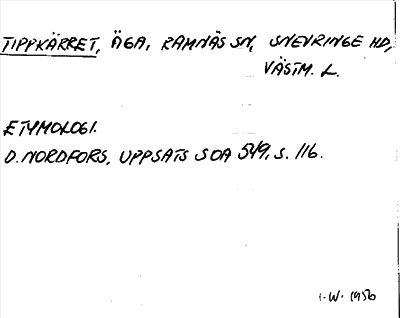 TIPPKÄRRET, ÄGA, RAMNÄS SN, SNEVRINGE HD,
VÄSTM. L.
ETYMOLOGI.
D. NORDFORS, UPPSATS SOA 549, S. 116.
I. W. 1956